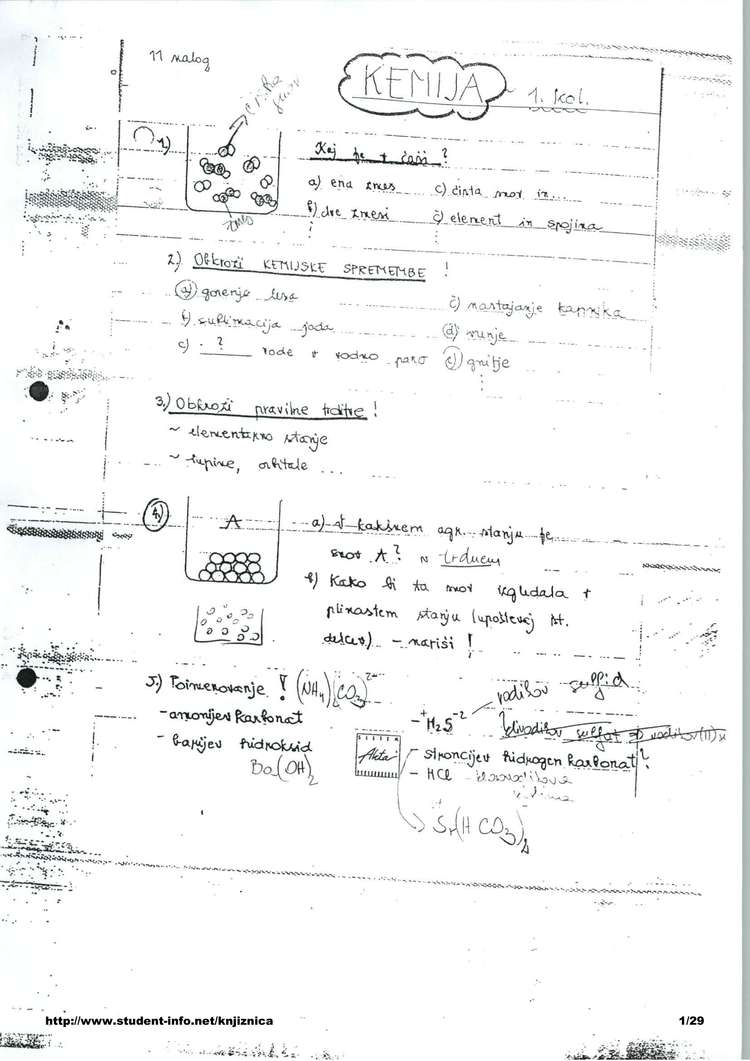 11 nalog
KEMIJA 1. kol.
1) Kaj je v čaši?
a) ena zmes c) čista snov in...
b) dve zmesi č) element in spojina
2.) Obkroži KEMIJSKE SPREMEMBE!
a) gorenje lesa č) nastajanje kapnika
b) sublimacija joda d) runje
c) . ? vode v vodno paro e) gnitje
3.) Obkroži pravilne trditve!
~ elementarno stanje
~ lupine, orbitale...
4.) A a) V kakšnem agr. stanju je
snov A? ~ trdnem
b) Kako bi ta snov izgledala v
plinastem stanju (upoštevaj št.
delcev) - nariši!
5.) Poimenovanje! (NH4)2CO3 2-
- amonijev karbonat
- barijev hidroksid
Ba(OH)2
- +H2S-2 vodikov sulfid
Aleta
- stroncijev hidrogen karbonat?
- HCl
Sr(HCO3)2
http://www.student-info.net/knjiznica 1/29